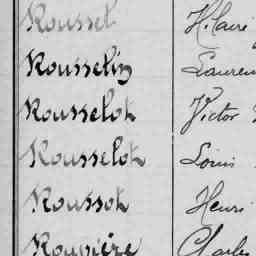 Roussel Hilaire
Rousselin Lauren
Rousselot Victor
Rousselot Louis
Roussot Henri
Rouvière Charles